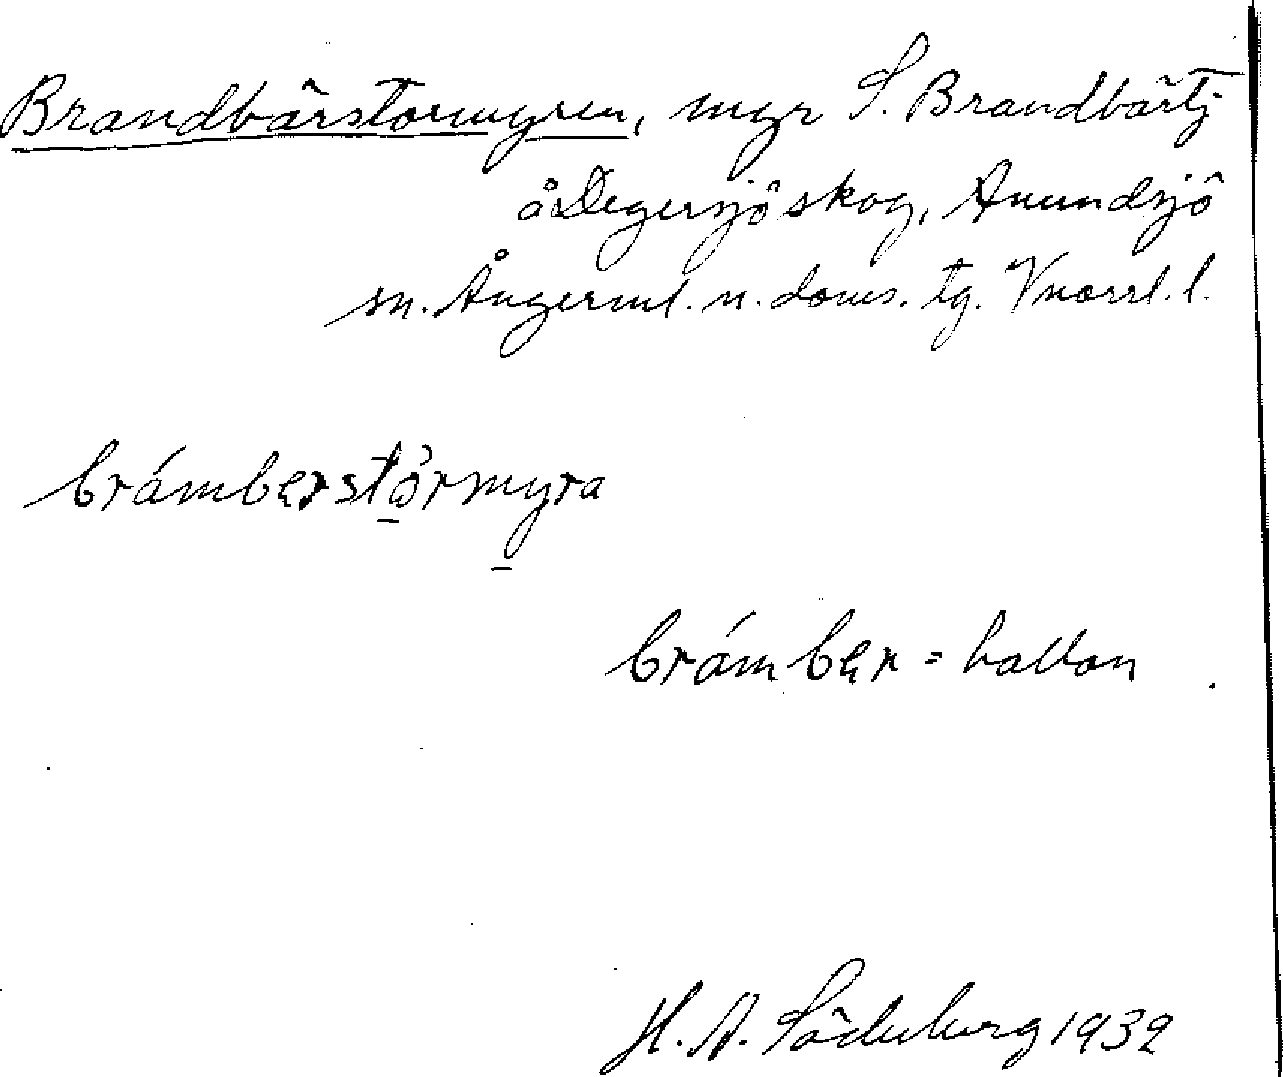 Brandbärstormyren, myr S. Brandbärtj
å Degersjö skog, Anundsjö
sn. Ångerml. n. doms. tg. Vnorrl. l.
brámberstörmyra
brámber = hallon
H. A. Söderberg 1932